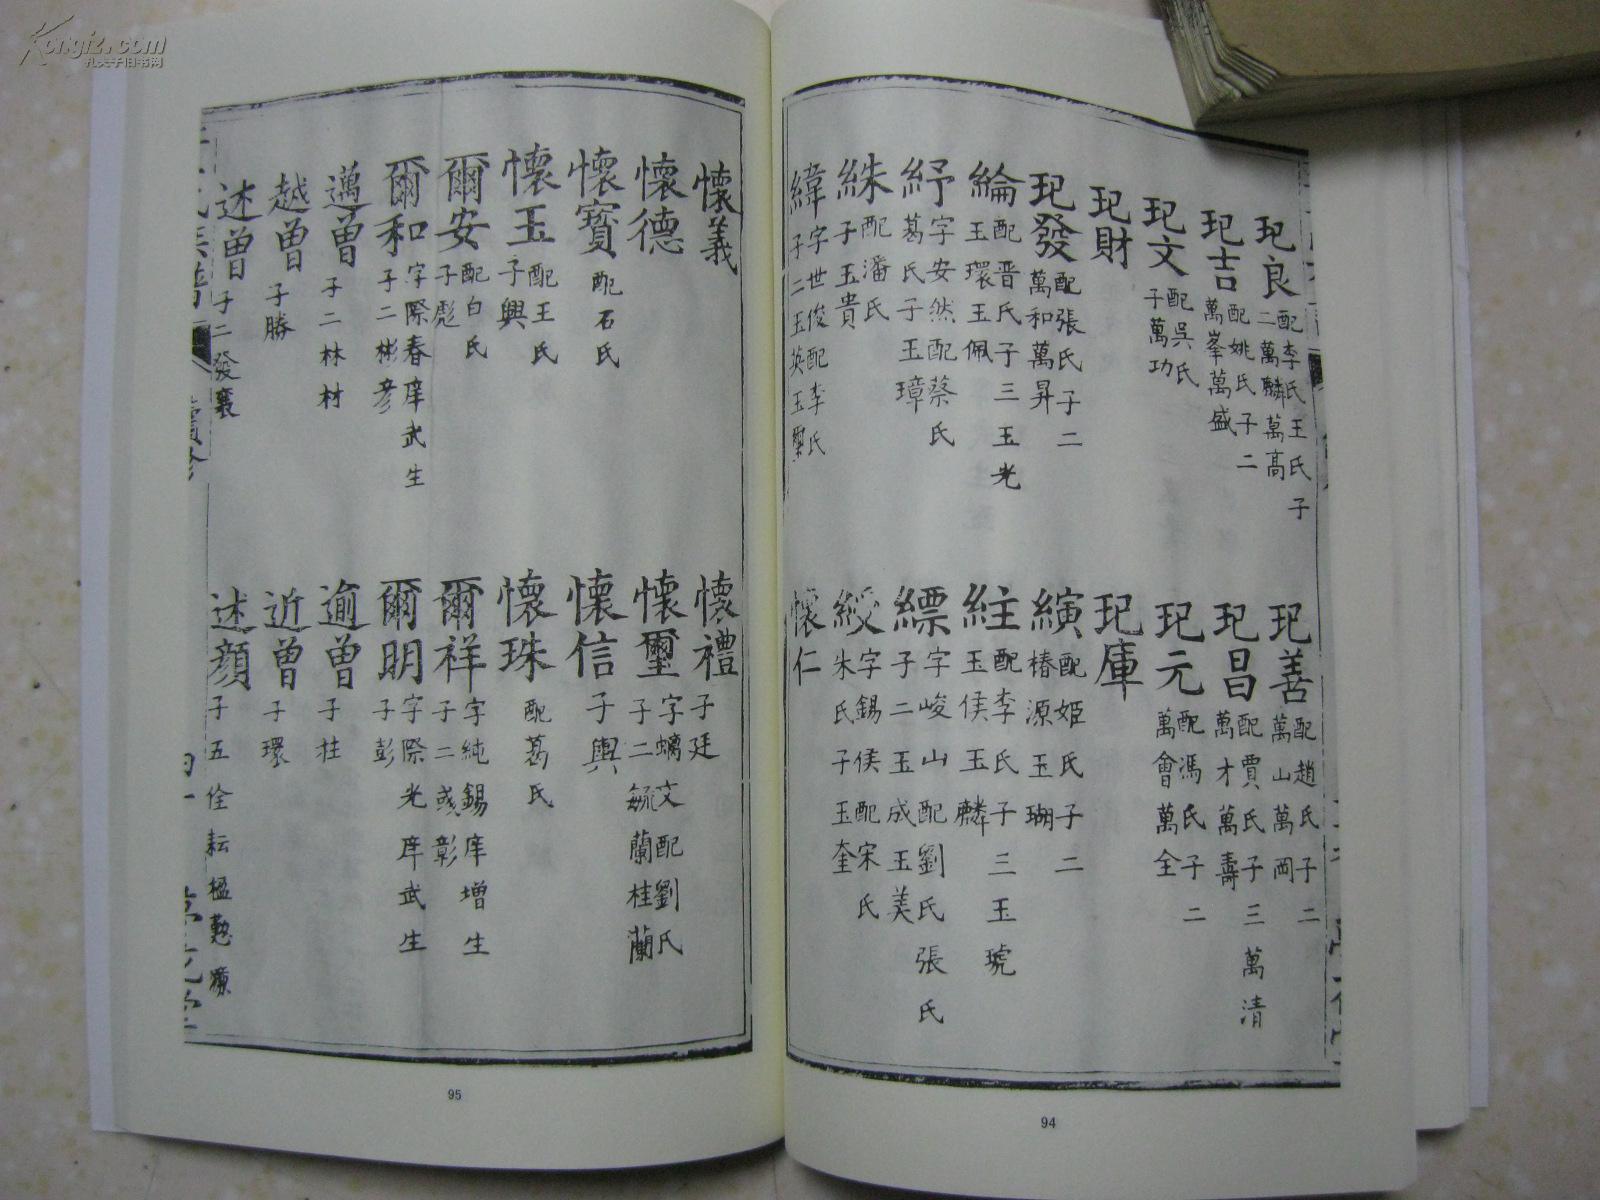 Kongfz.com
孔夫子旧书网
玘良 配李氏王氏子二萬麟萬高
玘吉 配姚氏子二萬峯萬盛
玘文 配吳氏子萬功
玘財
玘發 配張氏子二萬和萬昇
綸 配晋氏子三玉光玉環玉佩
紓 字安然配蔡氏葛氏子玉璋
絑 配潘氏子玉貴
緯 字世俊配李氏子二玉英玉
玘善 配趙氏子二萬山萬
玘昌 配賈氏子三萬清萬才萬壽
玘元 配馮氏子二萬會萬全
玘庫
縯 配姬氏子二椿源玉瑚
紸 配李氏子三玉琥玉侯玉麟
縹 字峻山配劉氏張氏子二玉成玉美
綬 字錫侯配宋氏朱氏子玉奎
懷仁
94
懷義
懷德
懷寶 配石氏
懷玉 配王氏子興
爾安 配白氏子彪
爾和 字際春庠武生子二彬彦
邁曾 子二林材
越曾 子勝
述曾 子二發襄
懷禮 子廷
懷璽 字螭文配劉氏子二毓蘭桂蘭
懷信 子輿
懷珠 配葛氏
爾祥 字純錫庠增生子二彧彰
爾明 字際光庠武生子彭
逾曾 子柱
近曾 子環
述顏 子五佺耘楹
續修
95